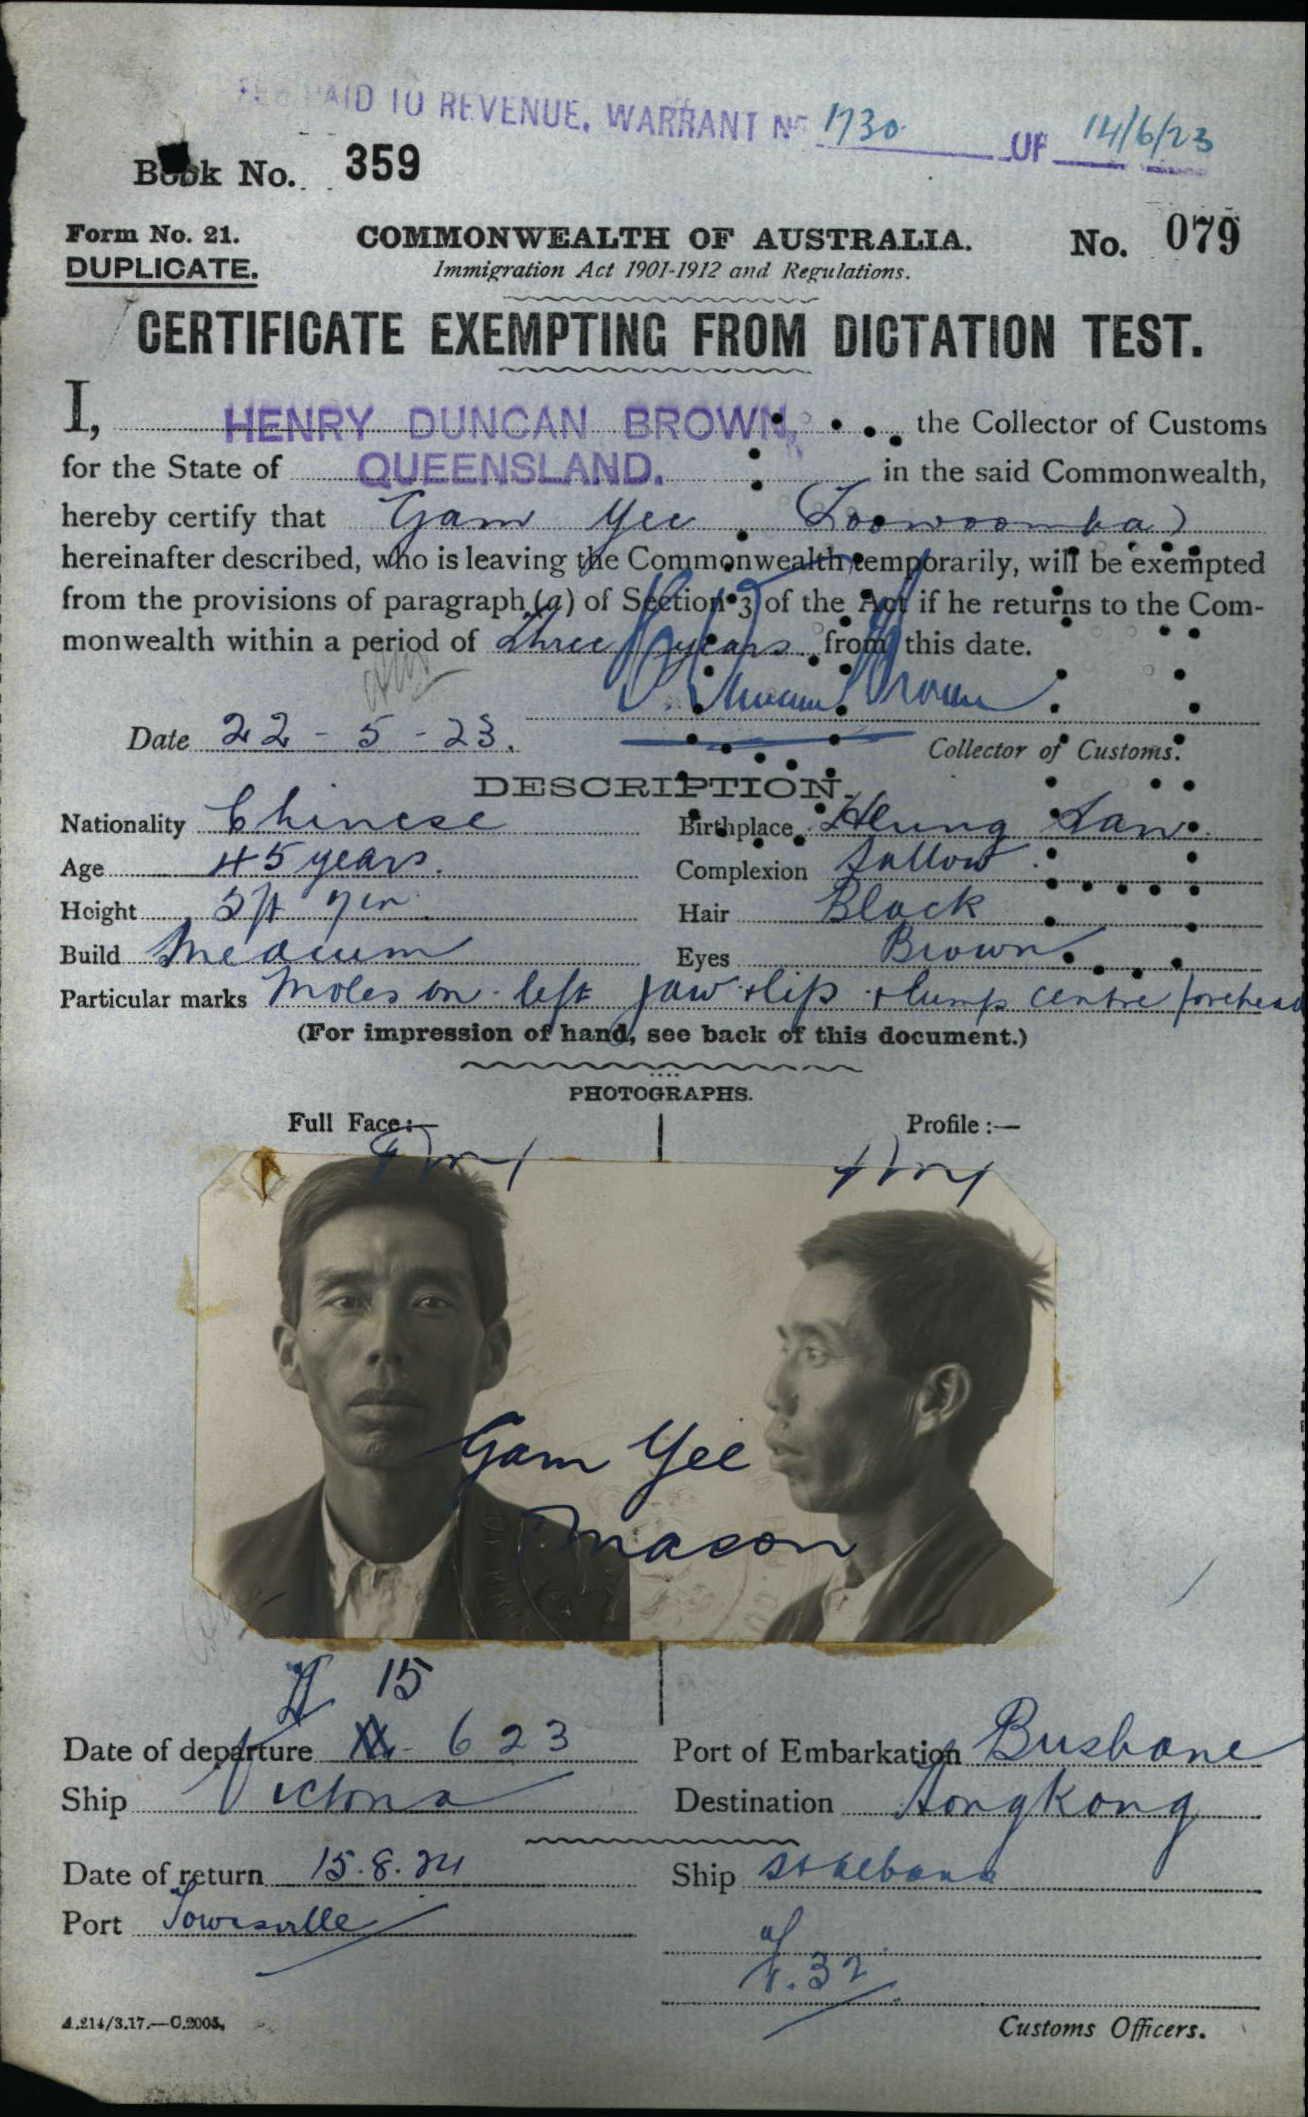 PAID TO REVENUE, WARRANT No 1730 OF 14/6/23
Book No. 359
Form No. 21. COMMONWEALTH OF AUSTRALIA. No. 079
DUPLICATE. Immigration Act 1901-1912 and Regulations.
CERTIFICATE EXEMPTING FROM DICTATION TEST.
I, HENRY DUNCAN BROWN, the Collector of Customs
for the State of QUEENSLAND. in the said Commonwealth,
hereby certify that Gam Yee (Toowoomba)
hereinafter described, who is leaving the Commonwealth temporarily, will be exempted
from the provisions of paragraph (a) of Section 3 of the Act if he returns to the Com-
monwealth within a period of three years from this date.
Date 22-5-23. Collector of Customs.
DESCRIPTION.
Nationality Chinese Birthplace Heung San.
Age 45 years. Complexion Sallow
Height 5ft 7in. Hair Black
Build Medium Eyes Brown.
Particular marks Moles on left jaw & lip & lump centre forehead
(For impression of hand, see back of this document.)
PHOTOGRAPHS.
Full Face:— Profile:—
Gam Yee
Mason
15
Date of departure 6 23 Port of Embarkation Brisbane
Ship Victoria Destination Hongkong
Date of return 15.8.24 Ship St Albans
Port Townsville
F.32
A.214/3.17.—C.2005. Customs Officers.